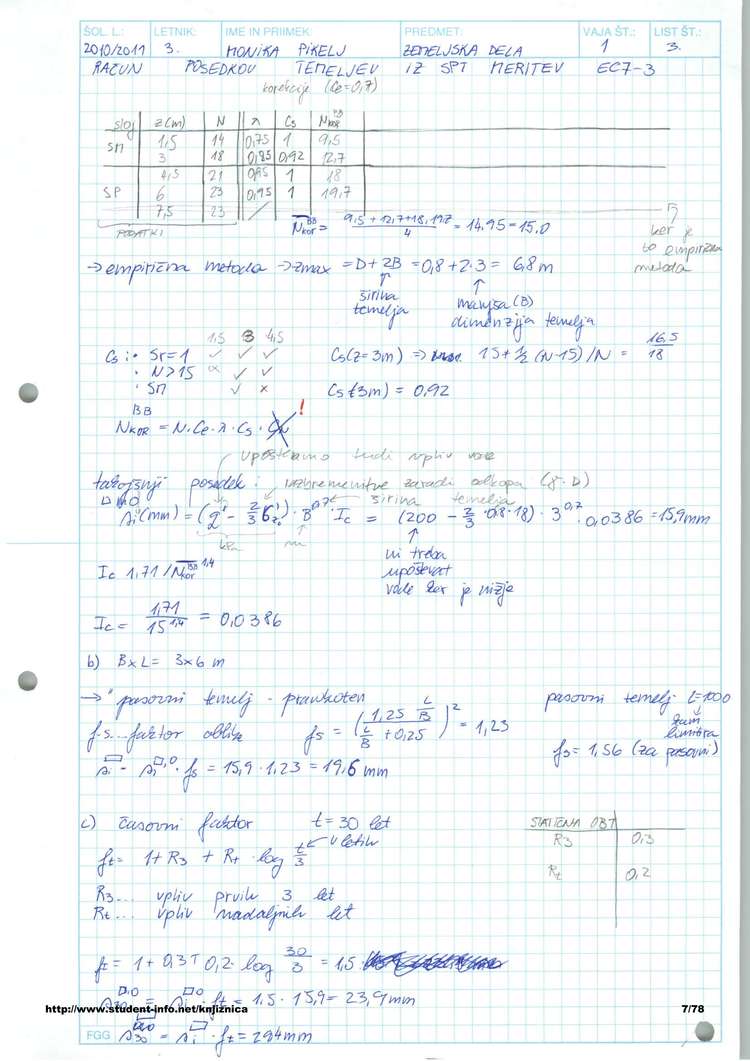 ŠOL. L.: LETNIK: IME IN PRIIMEK: PREDMET: VAJA ŠT.: LIST ŠT.:
2010/2011 3. MONIKA PIKELJ ZEMELJSKA DELA 1 3.
RAČUN POSEDKOV TEMELJEV IZ SPT MERITEV EC7-3
korekcije (Ce=0,7)
sloj z(m) N λ Cs Nkor BB
SM 1,5 14 0,75 1 9,5
3 18 0,85 0,92 12,7
4,5 21 0,95 1 18
SP 6 23 0,95 1 19,7
7,5 23 /
PODATKI
Nkor BB = 9,5 + 12,7+18,19,7 / 4 = 14,95 = 15,0
ker je
to empirična
metoda
→ empirična metoda → zmax = D + 2B = 0,8 + 2·3 = 6,8 m
↑ širina temelja
↑ manjša (B) dimenzija temelja
1,5 3 4,5
Cs : • Sr=1 ✓ ✓ ✓
• N>15 × ✓ ✓
• SM ✓ ×
Cs(z=3m) => 15+1/2 (N-15)/N = 16,5/18
Cs (3m) = 0,92
NKOR BB = N·Ce·λ·Cs·CN !
upoštevamo tudi vpliv vode
takojšnji posedek : razbremenitve zaradi odkopa (γ·D)
širina temelja
si □,0 (mm) = (q' - 2/3 σ'zo) · B^0,7 · Ic = (200 - 2/3 · 0,8·18) · 3^0,7 · 0,0386 = 15,9mm
kPa m
↑
ni treba
upoštevat
vode ker je nižje
Ic 1,71 / Nkor BB 1,4
Ic = 1,71 / 15^1,4 = 0,0386
b) B×L = 3×6 m
→ pasovni temelj - pravokoten
pasovni temelj L=1000
fs... faktor oblike
fs = (1,25 L/B / L/B + 0,25)² = 1,23
fs = 1,56 (za pasovni)
si □ - si □,0 · fs = 15,9 · 1,23 = 19,6 mm
c) časovni faktor t = 30 let
STATIČNA OBT
R3 0,3
Rt 0,2
ft = 1 + R3 + Rt · log t/3 ← v letih
R3... vpliv prvih 3 let
Rt... vpliv nadaljnih let
ft = 1 + 0,3 + 0,2 · log 30/3 = 1,5
s30 □,0 = si □,0 · ft = 1,5 · 15,9 = 23,9mm
http://www.student-info.net/knjiznica 7/78
FGG s30 □ = si □ · ft = 29,4mm